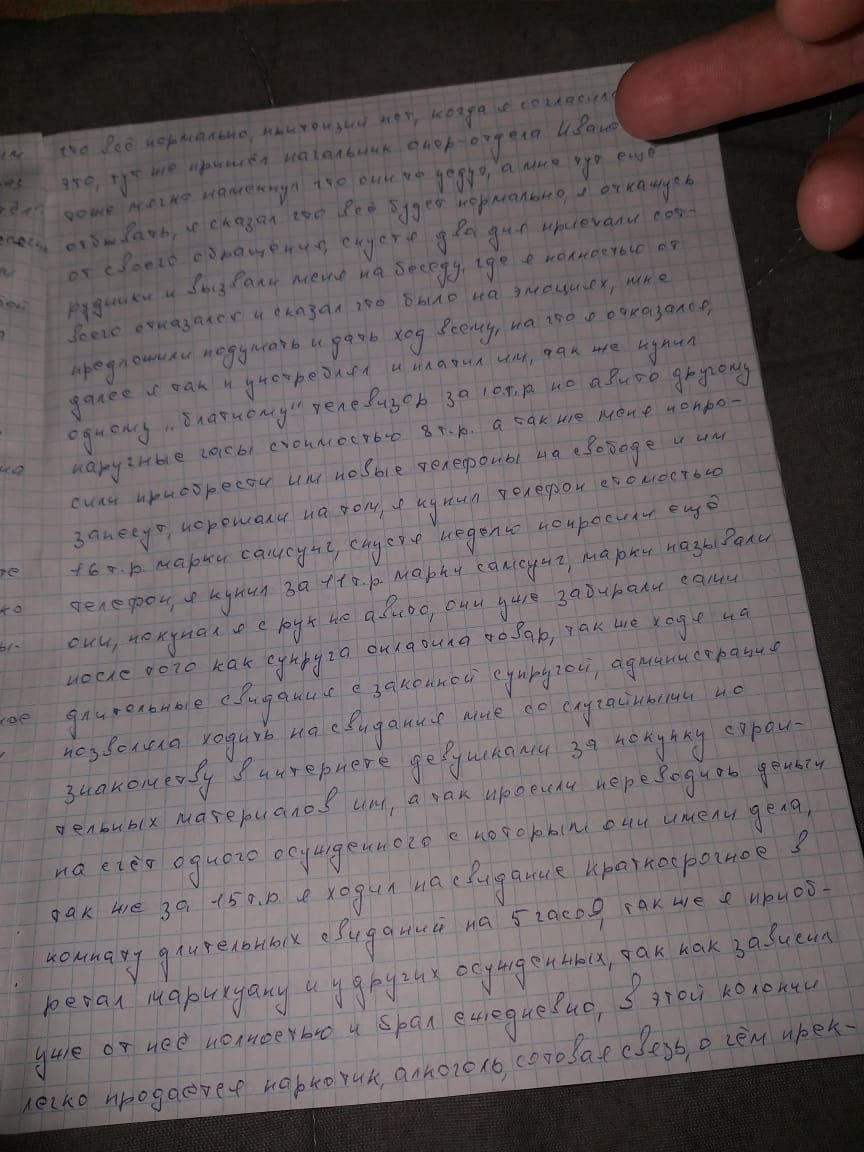 что всё нормально, притензий нет, когда я согласился
это, тут же пришёл начальник опер-отдела Ивано
тоже мягко намекнул что они то уедут, а мне тут ещё
отбывать, я сказал что всё будет нормально, я откажусь
от своего обращения, спустя два дня приехали сот-
рудники и вызвали меня на беседу, где я полностью от
всего отказался и сказал что было на эмоциях, мне
предложили подумать и дать ход всему, на что я отказался,
далее я так и употреблял и платил им, так же купил
одному "блатному" телевизор за 10т.р. по авито другому
наручные часы стоимостью 8т.р. а так же меня попро-
сили приобрести им новые телефоны на свободе и им
занесут, порешали на том, я купил телефон стоимостью
16т.р. марки самсунг, спустя неделю попросили ещё
телефон, я купил за 11т.р. марки самсунг, марки называли
они, покупал я с рук по авито, они уже забирали сами
после того как супруга оплатила товар, так же ходя на
длительные свидания с законной супругой, администрация
позволяла ходить на свидания мне со случайными по
знакомству в интернете девушками за покупку строи-
тельных материалов им, а так просили переводить деньги
на счёт одного осужденного с которым они имели дела,
так же за 15т.р. я ходил на свидание краткосрочное в
комнату длительных свиданий на 5 часов, так же я приоб-
ретал марихуану и у других осужденных, так как зависил
уже от неё полностью и брал ежедневно, в этой колонии
легко продаётся наркотик, алкоголь, сотовая связь, о чём прек-